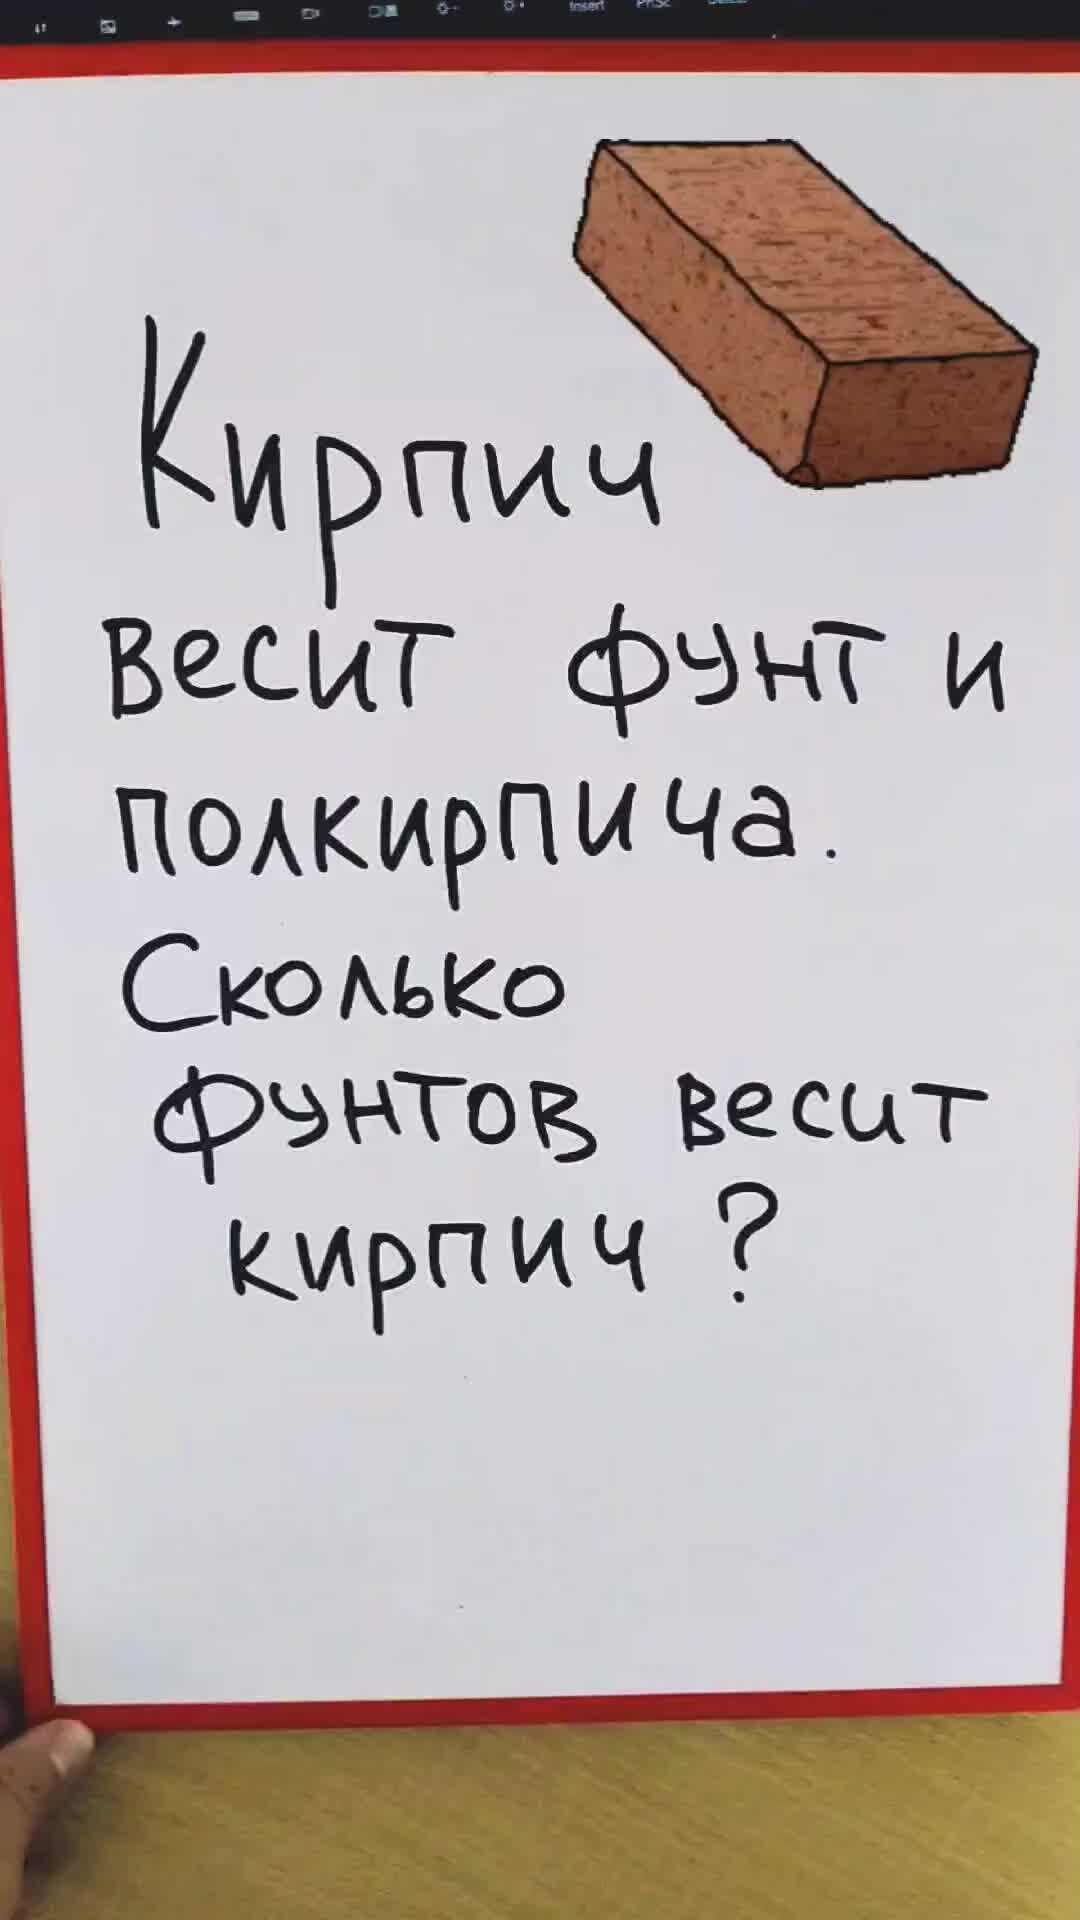 Insert
Кирпич
весит фунт и
полкирпича.
Сколько
фунтов весит
кирпич?